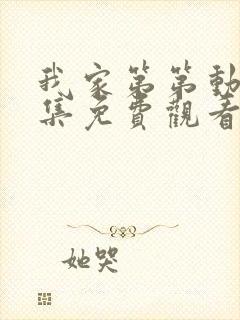 我家第第動
集免費觀看
她哭